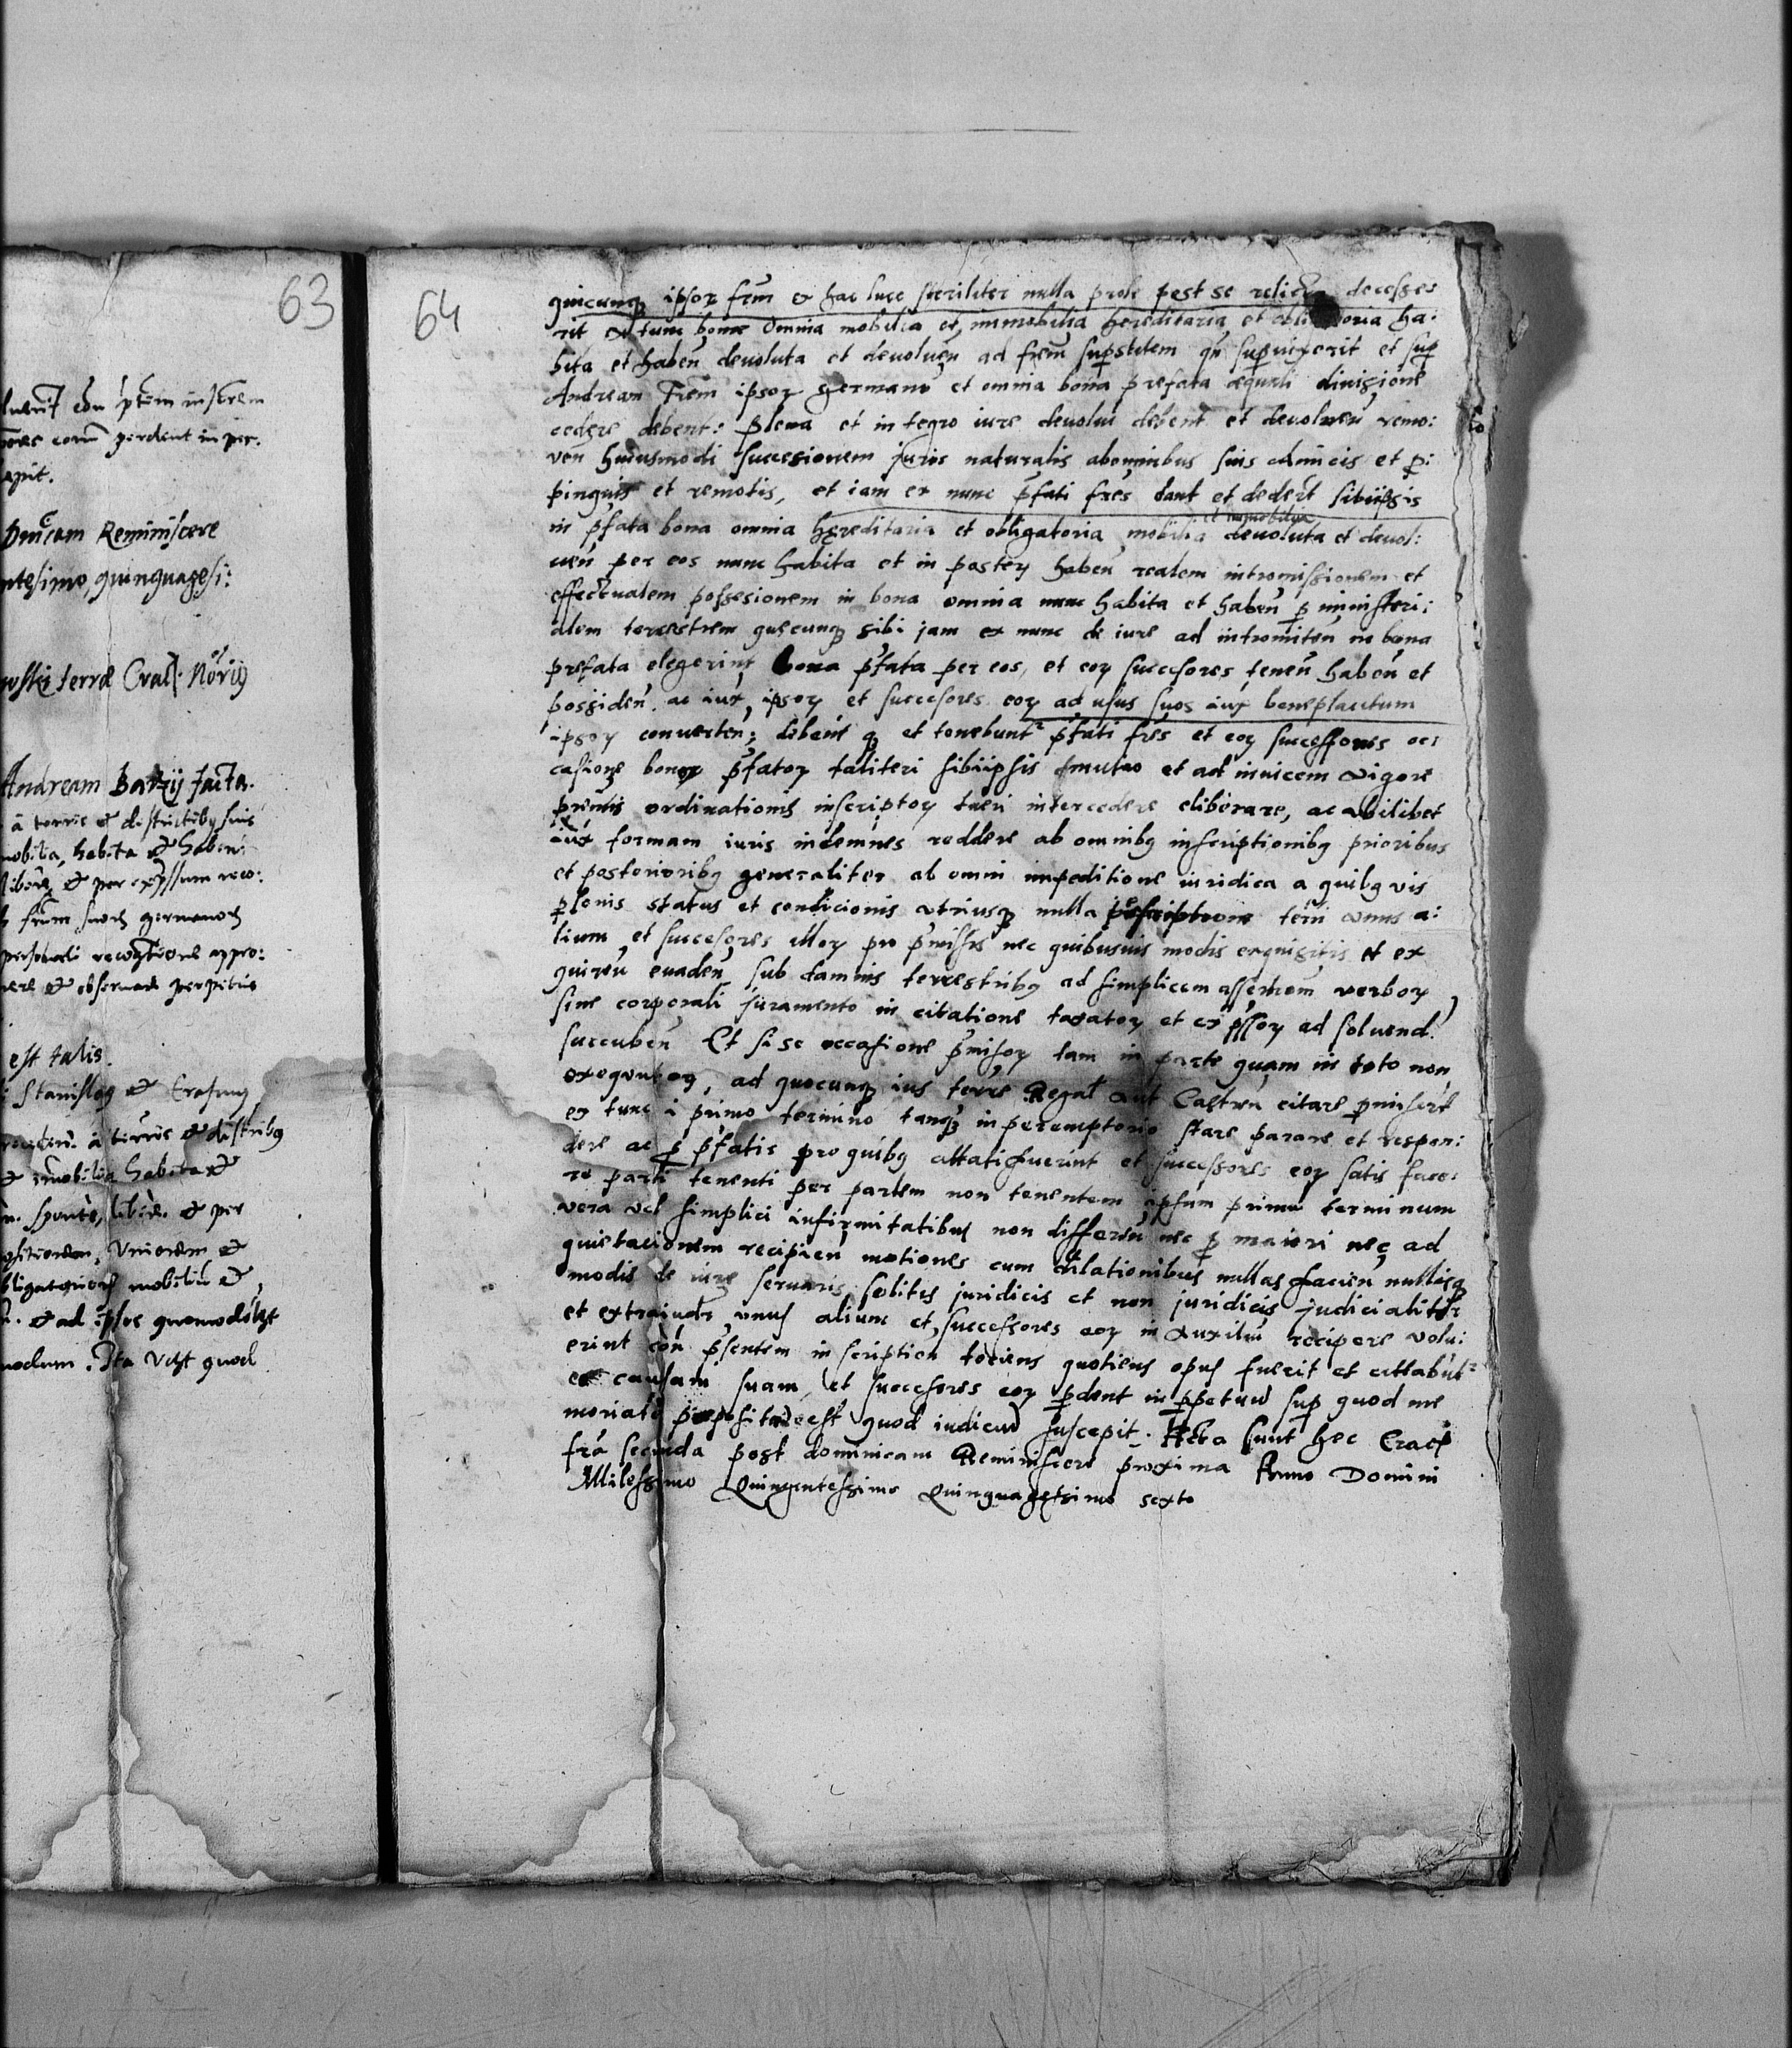 63
luerit con ptem inserem
eorum perdent in per:
apit.
Dnicam Reminiscere
ntesimo, quinquagesi:
wski terræ Crac:
Andream Batzij facta.
à terris et districtibq suis
mobilia, habita et haben:
libere et per expssum reco:
frm suorum germanorum
personali recogtione appro:
nere et obseruare perpetuis
est talis.
Stanislaq et Erasmq
à terris et distribq
et imobilia habita et
sponte, libere et per
ositionem, Vnionem et
bligatorior mobiliu et
et ad ipsos quomodolibt
modum. Ita Vclt quod
64
quicunq ipsor frm ex hac luce steriliter nulla prole post se relicta decesse:
rit ex tunc bona Omnia mobilia et immobilia hereditaria et obli oria ha:
bita et haben deuoluta et deuoluen ad frem supstitem qn supuixerit et sup
Andream Frem ipsor germanu et omnia bona prefata æquali diuisione
cedere debent: plena et in tegro iure deuolui debent et deuoluen remo:
uen huiusmodi succesionem juris naturalis abomnibus suis Amicis et p:
pinquis et remotis, et iam ex nunc pfati fres dant et dedert sibiipsis
in pfata bona omnia hereditaria et obligatoria mobilia et immobilia deuoluta et deuol:
uen per eos nunc habita et in poster haben realem intromissionem et
effectualem possesionem in bona omnia nunc habita et haben p ministeri:
alem terrestrem quecunq sibi jam ex nunc de iure ad intromiten in bona
prefata elegerint bona pfata per eos, et eor succesores tenen haben et
possiden. ac iux, ipsor et succesores eor ad usus suos iux beneplacitum
ipsor conuerten: debent q et tenebunt pfati fres et eor successores oc:
casione bonor pfator taliter sibiipsis mutuo et ad inuicem vigore
pnntis ordinationis inscriptor tueri intercedere eliberare, ac
iux formam iuris indemnes reddere ab omnibq inscriptionibq prioribus
et posterioribq generaliter ab omni impeditione iuridica a quibq vis
psonis status et condicionis vtriusq nulla pscriptione terri unus a:
lium et succesores illor pro pmissis nec quibusuis modis exquisitis et ex
quiren euaden sub damnis terrestribq ad simplicem assertiom verbor
sine corporali juramento in citatione taxator et ex pssor ad soluend.
succuben Et si se occasione pmisor tam in parte quam in toto non
exequntor, ad quocunq ius terre Regal aut Castren citare pmisert
ex tunc i primo termino tanq in peremptorio stare parare et respon:
dere ac p pfatis pro quibq cittatifuerint et successores eor satis face:
re parti tenenti per partem non tenentem ipsum primu terminum
vera vel simplici infirmitatibus non differen nec p maiori nec ad
quietacionem recipien motiones cum dilationibus nullas facien nullisq
modis de iure seruaris solitis juridicis et non juridicis judicialiter
et extraiudr vnus alium et successores eor in Auxiliu recipere volu:
erint con psentem in scription totiens quotiens opus fuerit et cittabut
et causam suam et succesores eor pdent in ppetuu sup quod me
moriale prepositu est quod iudiciu suscepit. Acta sunt hec Crac
fra secunda post dominicam Reminiscere proxima Anno Domini
Milessimo Quingentessimo Quinquagesimo sexto